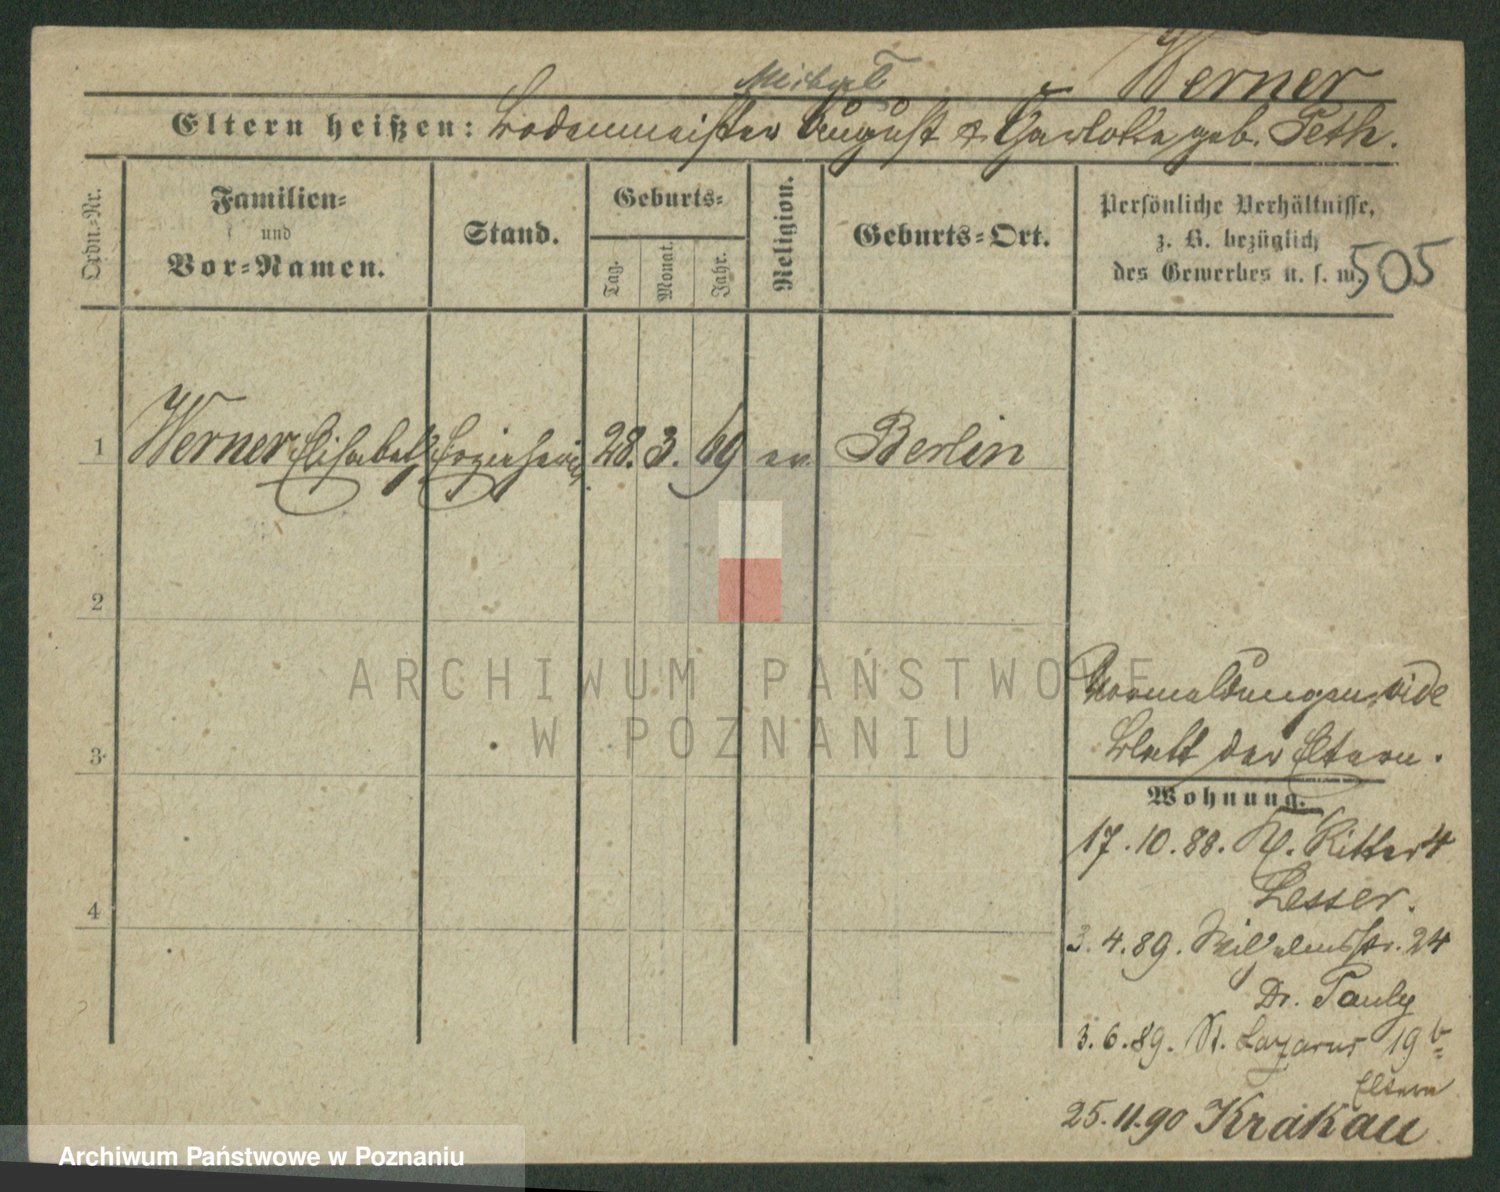 Werner
Michael
Eltern heißen: Bodenmeister August & Charlotte geb. Peth.
Ordn.-Nr.
Familien-
und
Vor-Namen.
Stand.
Geburts-
Tag.
Monat.
Jahr.
Religion.
Geburts-Ort.
Persönliche Verhältnisse,
z. B. bezüglich
des Gewerbes u. s. w.
505
1 Werner Elisabeth Erzieherin 28. 3. 69 ev. Berlin
2
3
4
Vormeldungen vide
Blatt der Eltern.
Wohnung.
17.10.88. Kl. Ritter 4
Lesser.
3.4.89. Wilhelmstr. 24
Dr. Pauly
3.6.89. St. Lazarus 19b
Eltern
25.11.90 Krakau
ARCHIWUM PAŃSTWOWE
W POZNANIU
Archiwum Państwowe w Poznaniu